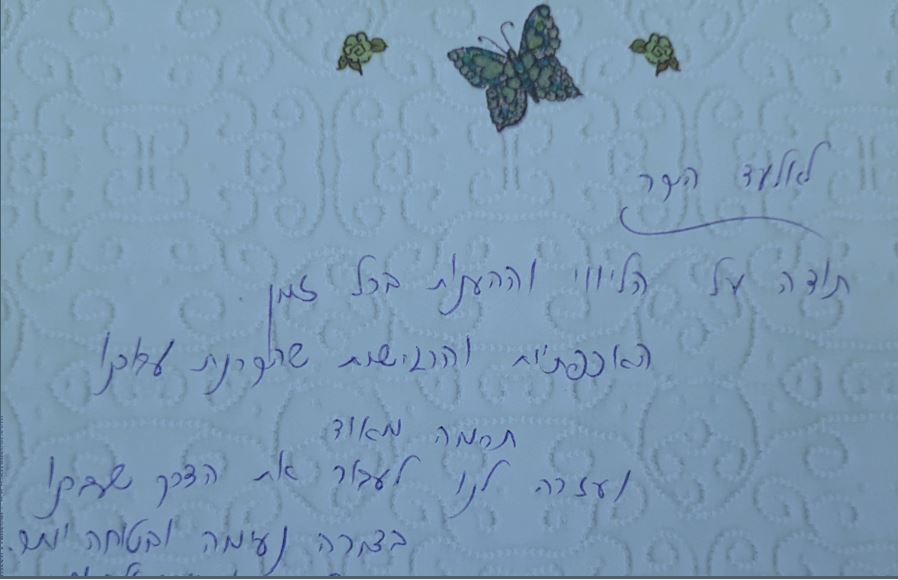 לאלעד היקר
תודה על הליווי וההענות בכל זמן
האכפתיות והרגישות שהקרנת עלינו
תרמה מאוד
ועזרה לנו לעבור את הדרך שעברנו
בצורה נעימה ובטוחה יותר.